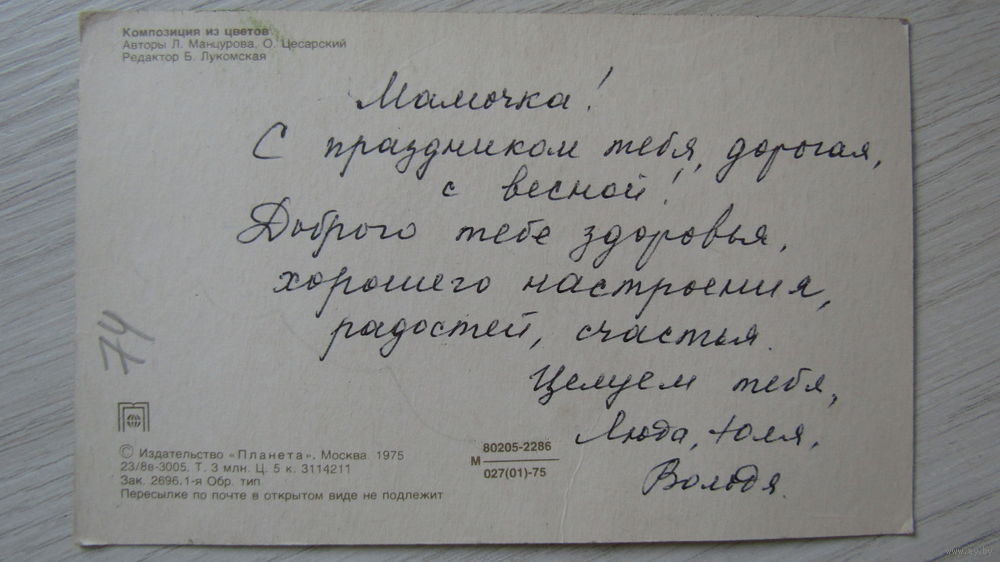 Композиция из цветов
Авторы Л. Манцурова. О. Цесарский
Редактор Б. Лукомская
Мамочка!
С праздником тебя, дорогая,
с весной!
Доброго тебе здоровья,
хорошего настроения,
радостей, счастья.
Целуем тебя,
Люда, Юля,
Володя.
74
© Издательство «Планета». Москва. 1975
23/8в-3005. Т. 3 млн. Ц. 5 к. 3114211
Зак. 2696.1-я Обр. тип
Пересылке по почте в открытом виде не подлежит
М 80205-2286
027(01)-75
www.ay.by